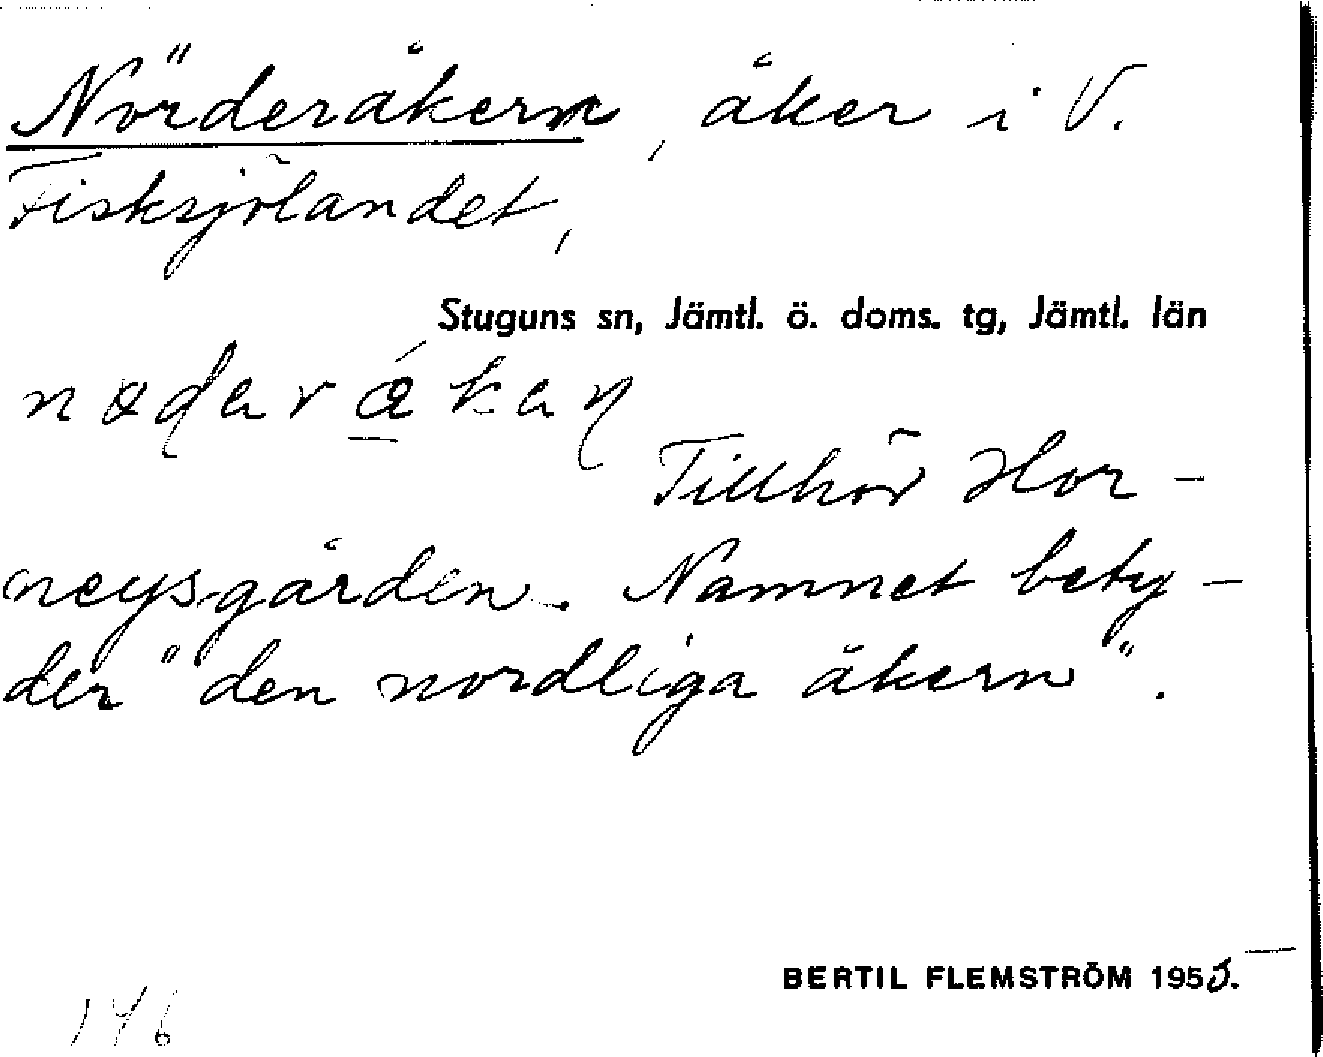 Nörderåkern, åker i V.
Fisksjölandet,
Stuguns sn, Jämtl. ö. doms. tg, Jämtl. län
Tillhör Hor-
neysgården. Namnet bety-
der "den nordliga åkern".
BERTIL FLEMSTRÖM 1955.
146